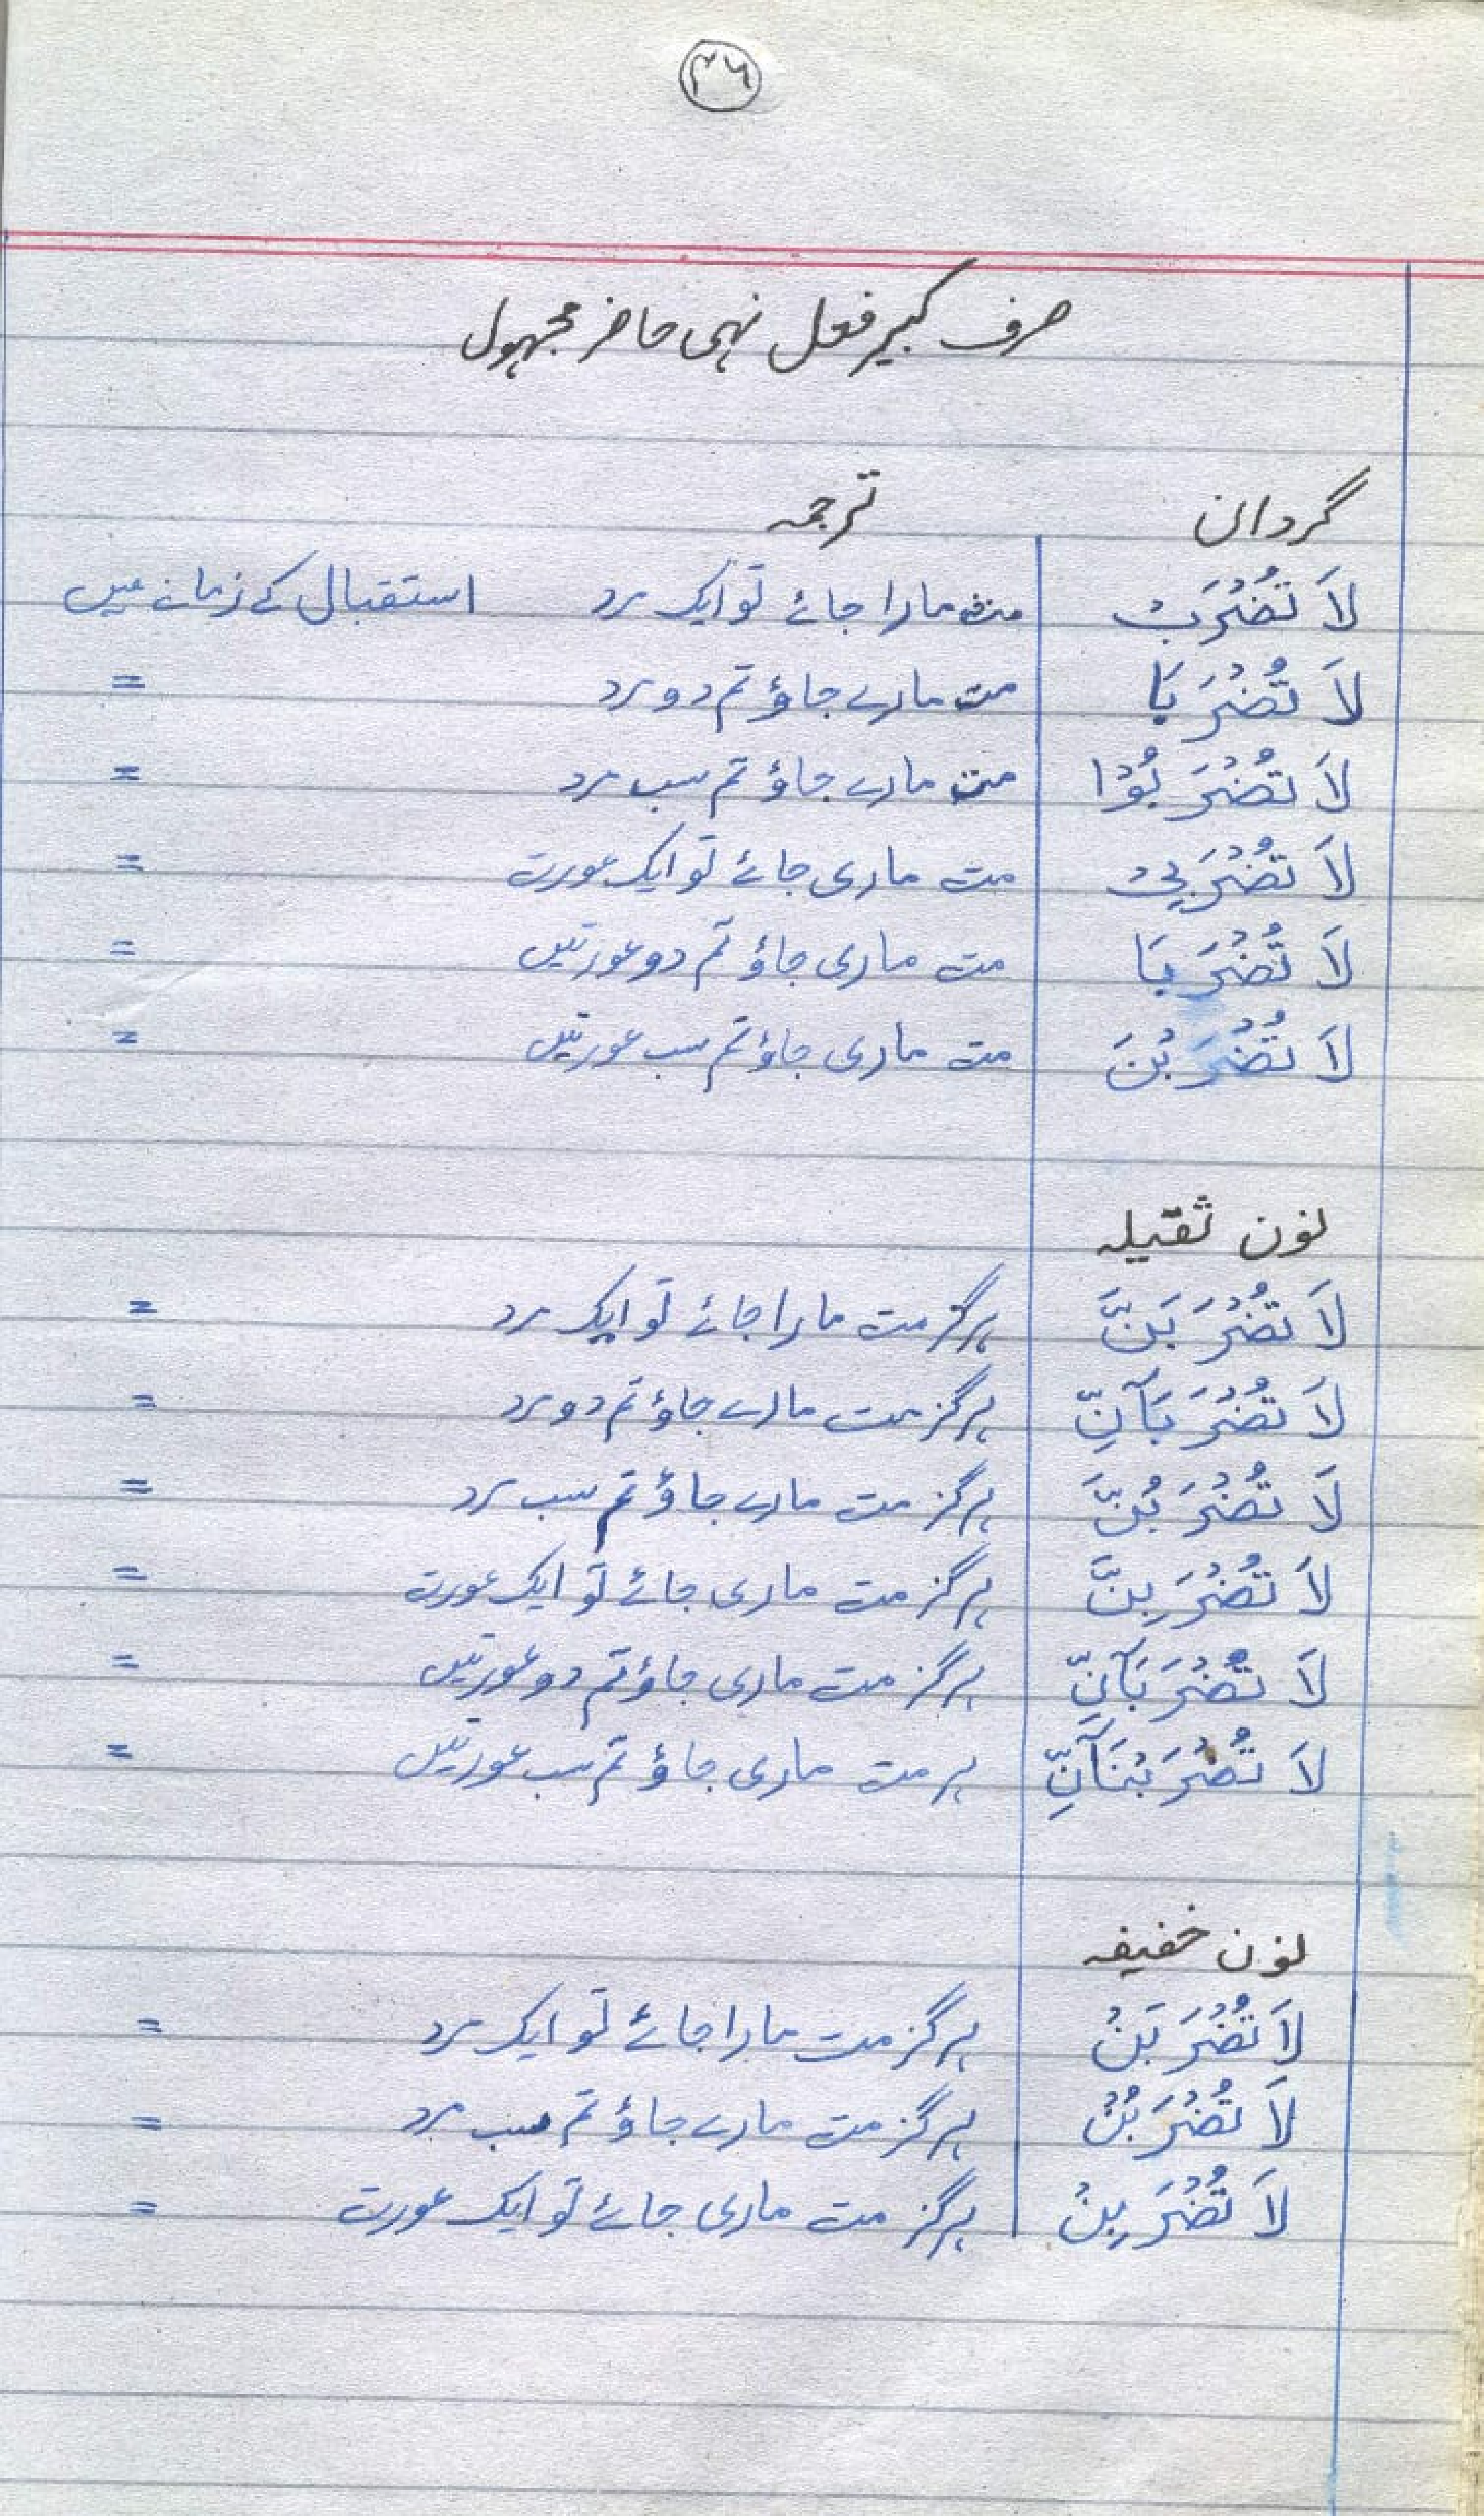 ۳۶
صرف کبیر فعل نہی حاضر مجہول
گردان ترجمہ
لَا تُضْرَبْ مت مارا جائے تو ایک مرد استقبال کے زمانے میں
لَا تُضْرَبَا مت مارے جاؤ تم دو مرد =
لَا تُضْرَبُوْا مت مارے جاؤ تم سب مرد =
لَا تُضْرَبِیْ مت ماری جائے تو ایک عورت =
لَا تُضْرَبَا مت ماری جاؤ تم دو عورتیں =
لَا تُضْرَبْنَ مت ماری جاؤ تم سب عورتیں =
نون ثقیلہ
لَا تُضْرَبَنَّ ہرگز مت مارا جائے تو ایک مرد =
لَا تُضْرَبَآنِّ ہرگز مت مارے جاؤ تم دو مرد =
لَا تُضْرَبُنَّ ہرگز مت مارے جاؤ تم سب مرد =
لَا تُضْرَبِنَّ ہرگز مت ماری جائے تو ایک عورت =
لَا تُضْرَبَآنِّ ہرگز مت ماری جاؤ تم دو عورتیں =
لَا تُضْرَبْنَآنِّ ہر مت ماری جاؤ تم سب عورتیں =
نون خفیفہ
لَا تُضْرَبَنْ ہرگز مت مارا جائے تو ایک مرد =
لَا تُضْرَبُنْ ہرگز مت مارے جاؤ تم سب مرد =
لَا تُضْرَبِنْ ہرگز مت ماری جائے تو ایک عورت =